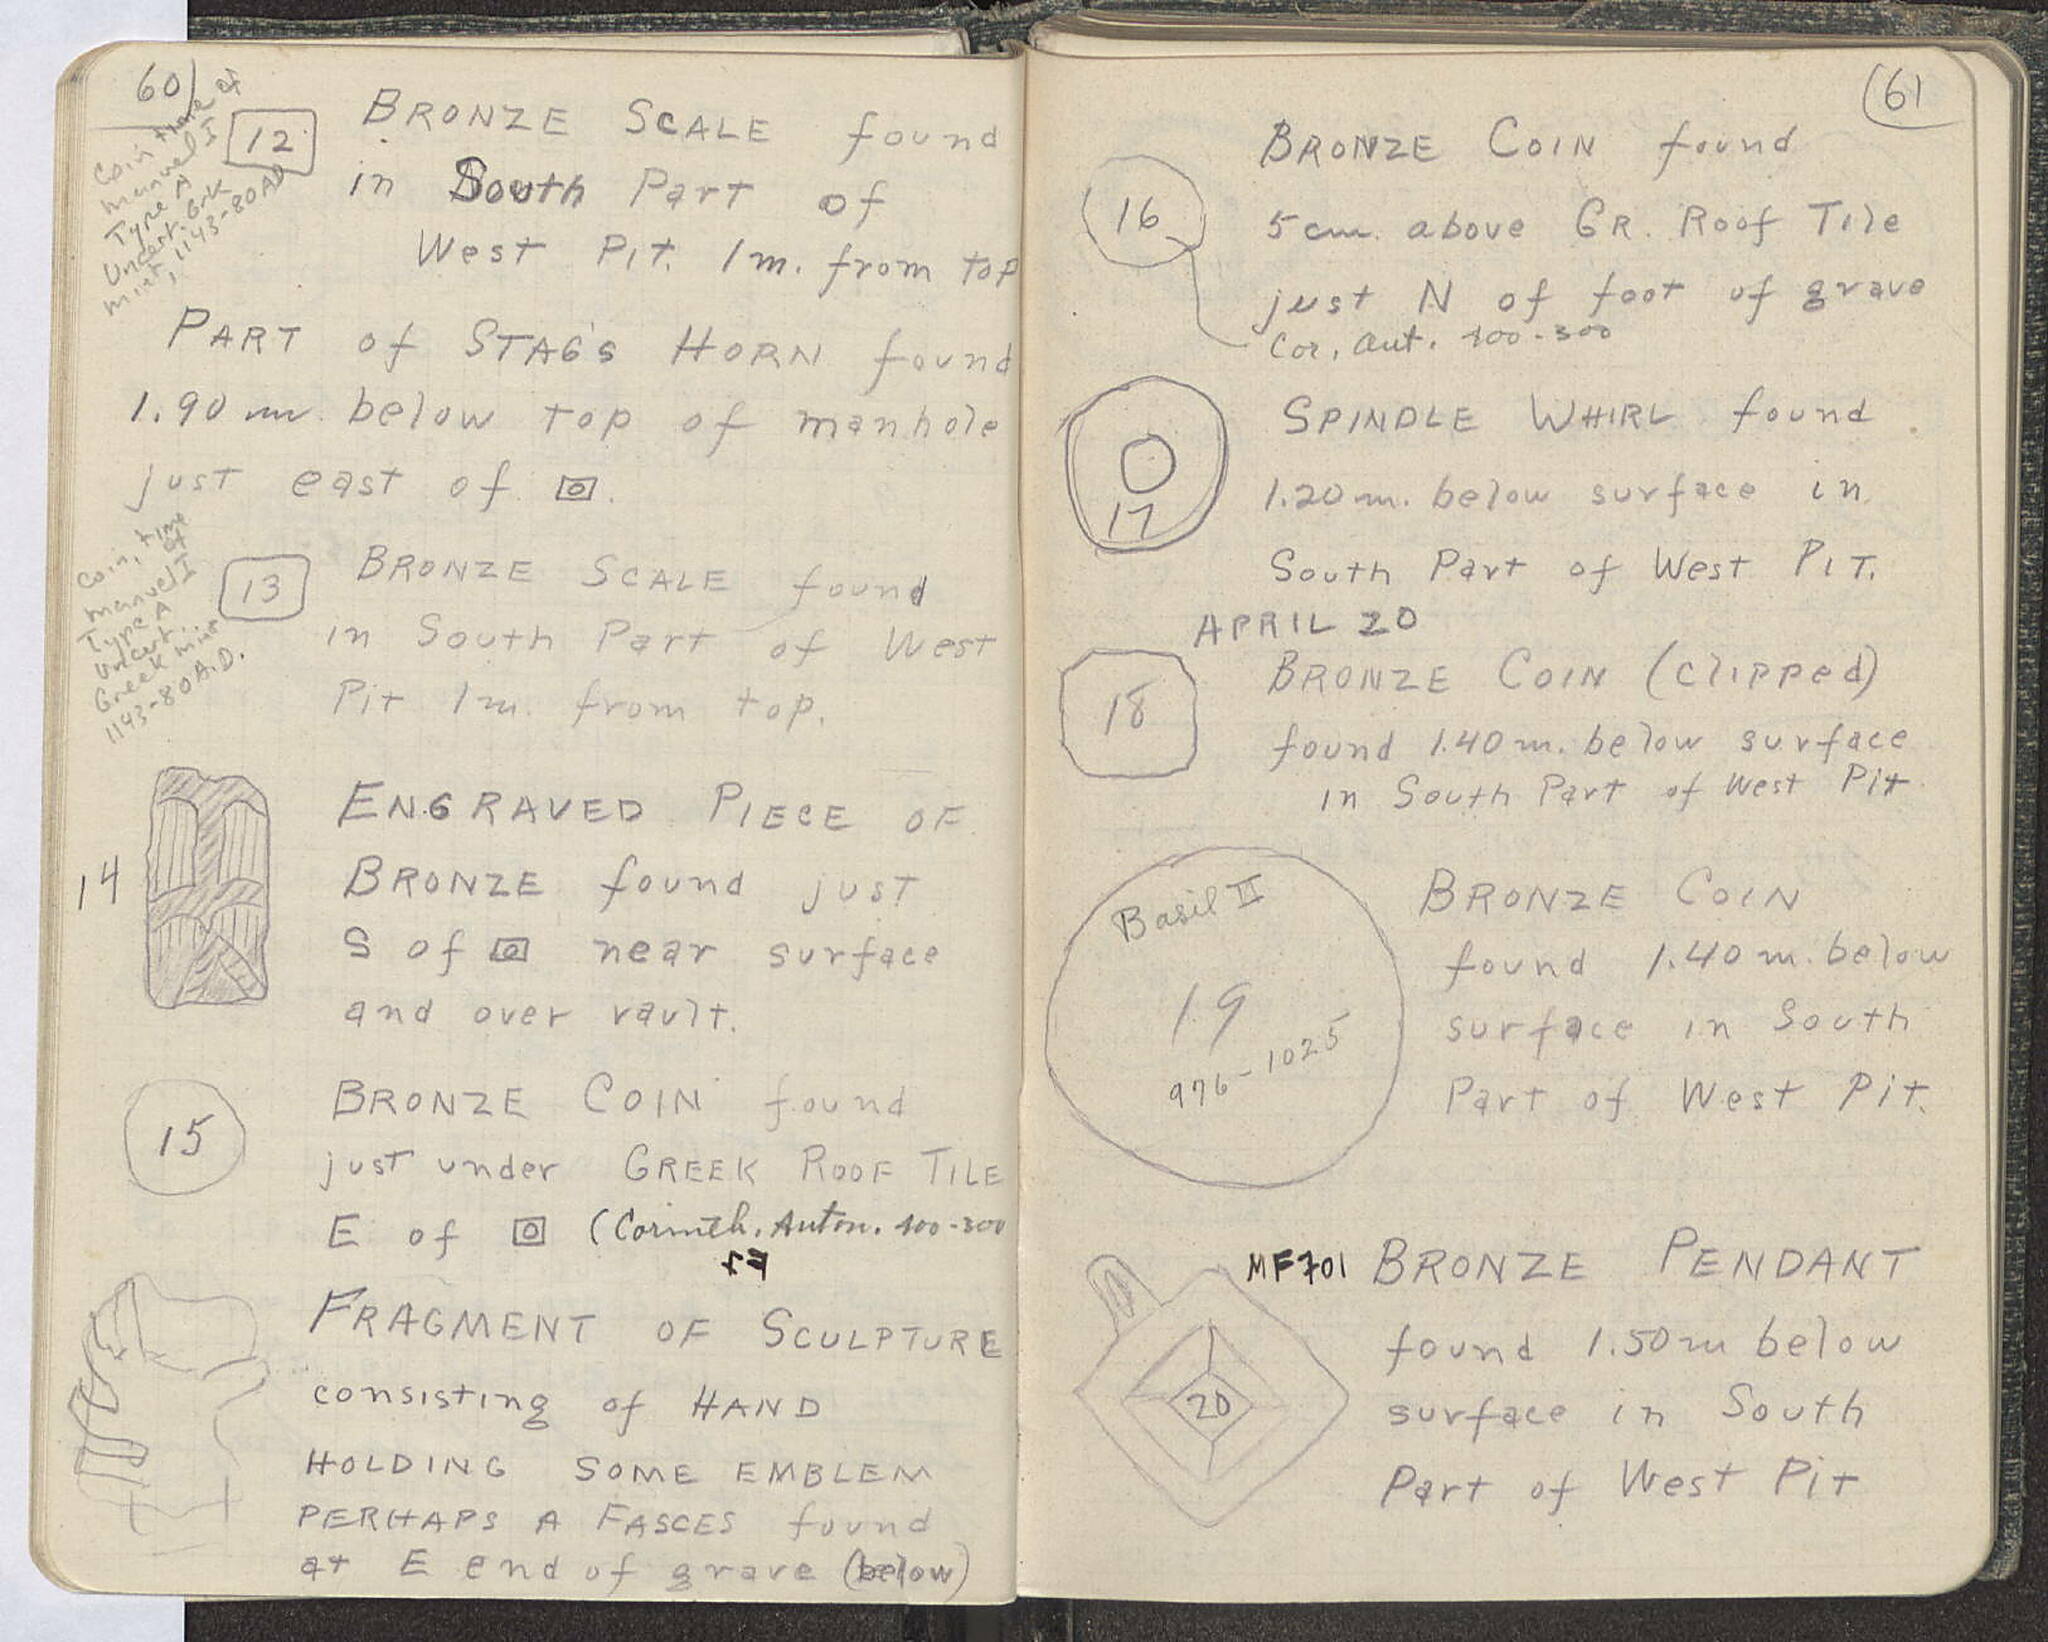 60
Coin time of
Manuel I
Type A
Uncert. Grk
mint, 1143-80 AD
12
BRONZE SCALE found
in South Part of
West Pit. 1m. from top
PART of STAG'S HORN found
1.90 m. below top of manhole
just east of
Coin, time
of
Manuel I
Type A
Uncert.
Greek mint
1143-80 A.D.
13
BRONZE SCALE found
in South Part of West
Pit 1m. from top.
14
ENGRAVED PIECE OF
BRONZE found just
S of near surface
and over vault.
15
BRONZE COIN found
just under GREEK ROOF TILE
E of (Corinth. Auton. 400-300
FRAGMENT OF SCULPTURE
consisting of HAND
HOLDING SOME EMBLEM
PERHAPS A FASCES found
at E end of grave (below)
61
16
BRONZE COIN found
5 cm. above GR. Roof Tile
just N of foot of grave
Cor. Aut. 400-300
17
SPINDLE WHIRL found
1.20 m. below surface in
South Part of West PIT.
APRIL 20
18
BRONZE COIN (clipped)
found 1.40 m. below surface
in South Part of West Pit
Basil II
19
976-1025
BRONZE COIN
found 1.40 m. below
surface in South
Part of West Pit.
20
MF701 BRONZE PENDANT
found 1.50 m below
surface in South
Part of West Pit